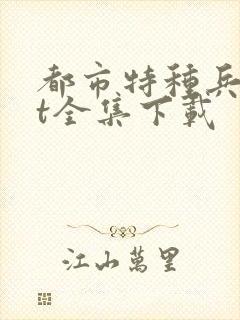 都市特種兵
t全集下載
江山萬里